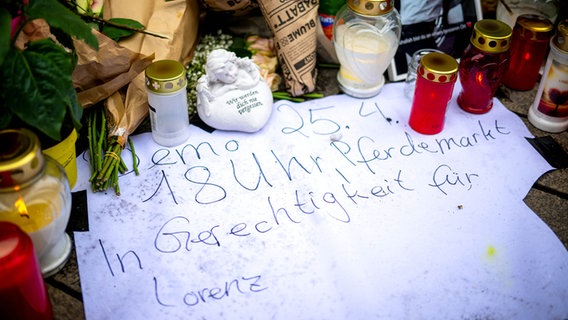 RABATT
BLUME
Wir werden
dich nie
vergessen.
Demo 25.4.
18 Uhr Pferdemarkt
In Gerechtigkeit für
Lorenz